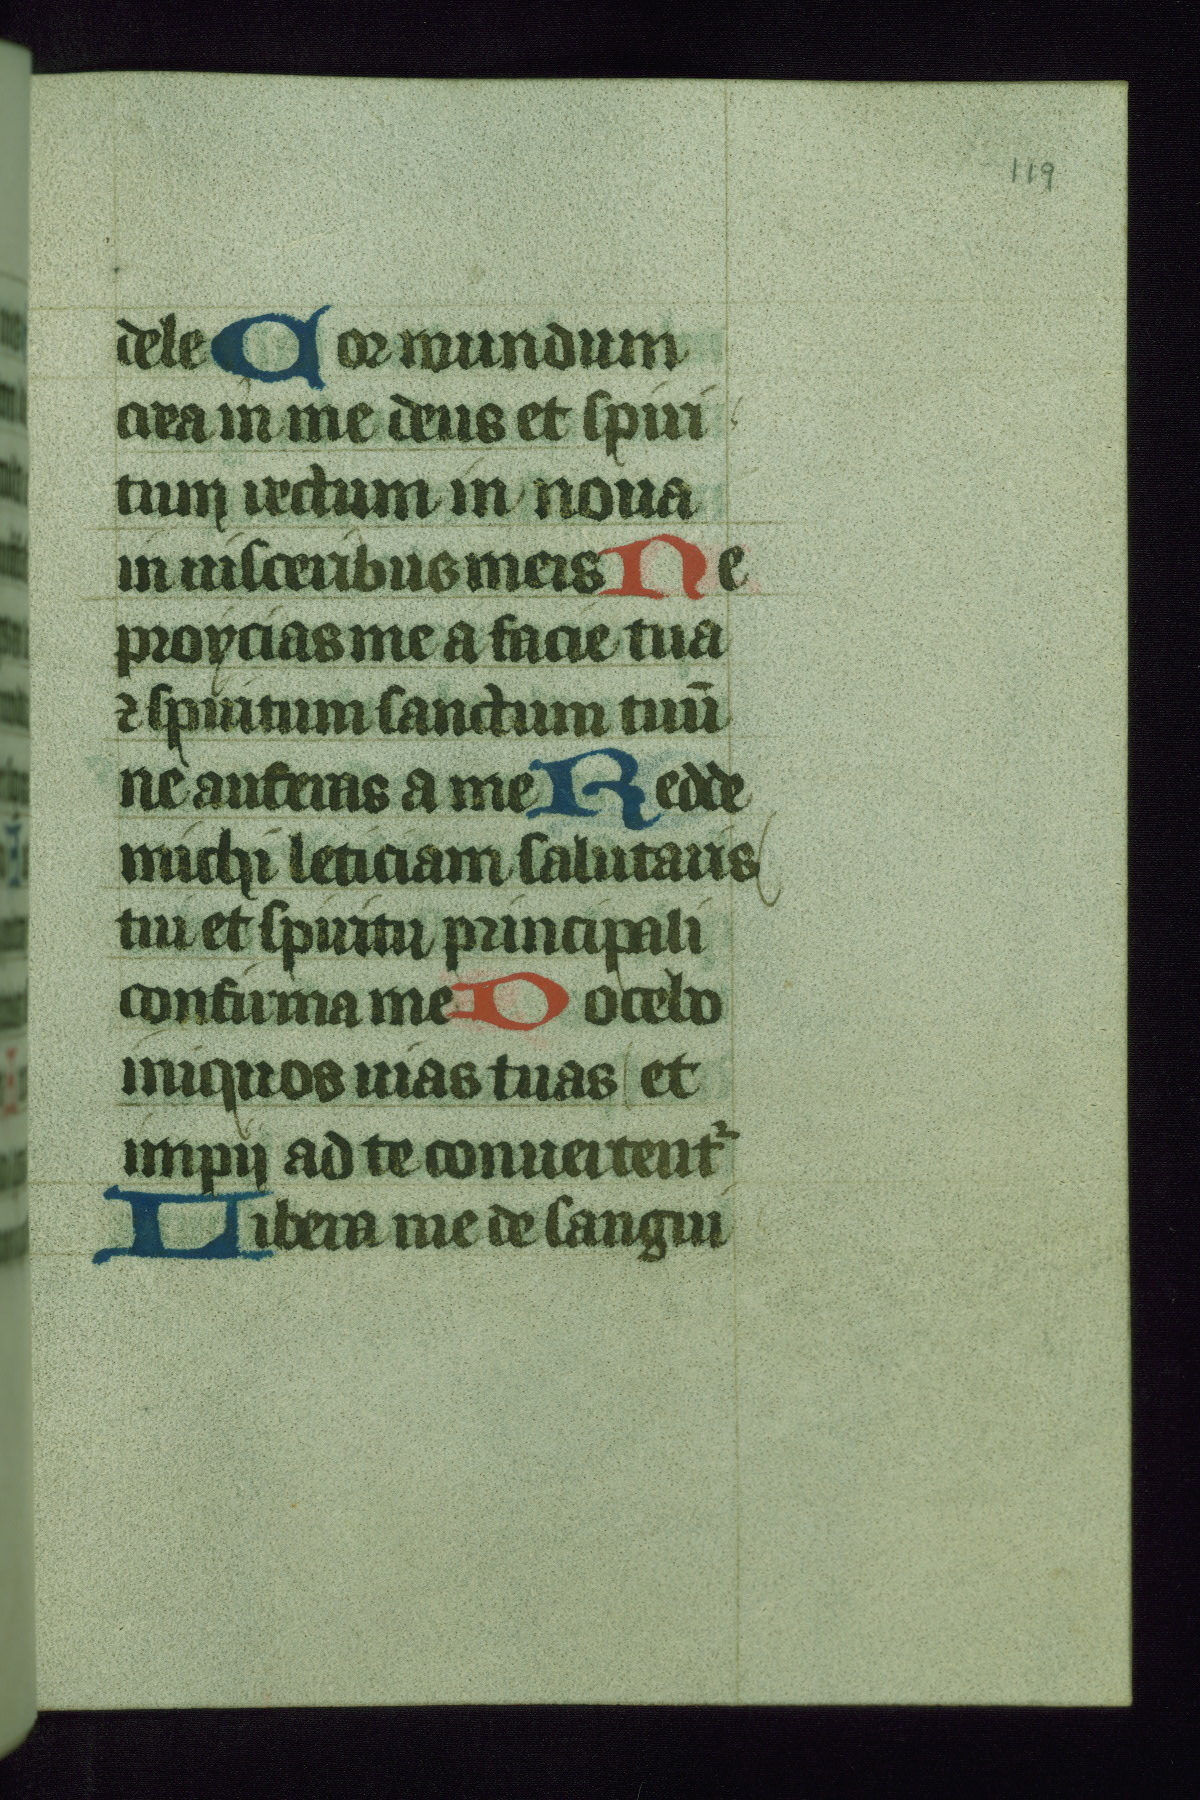 119
dele Cor mundum
crea in me deus et spiri
tum rectum in noua
in uisceribus meis Ne
proycias me a facie tua
⁊ spiritum sanctum tuū
ne auferas a me Redde
michi leticiam salutaris
tui et spiritu principali
confirma me Docebo
iniquos uias tuas et
impij ad te conuertent᷑
Libera me de sangui